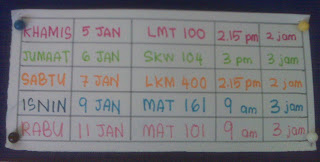 KHAMIS 5 JAN LMT 100 2.15 pm 2 jam
JUMAAT 6 JAN SKW 104 3 pm 3 jam
SABTU 7 JAN LKM 400 2.15 pm 2 jam
ISNIN 9 JAN MAT 161 9 am 3 jam
RABU 11 JAN MAT 101 9 am 3 jam